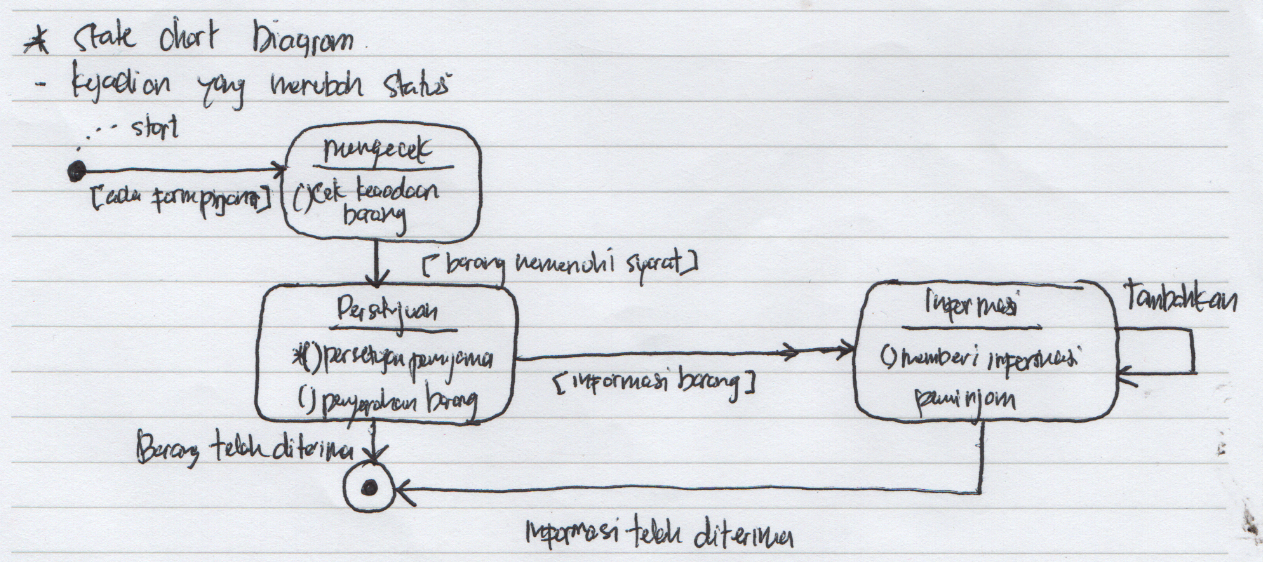 * State chart Diagram
- kejadian yang merubah status
start
[ada form pinjam]
mengecek
() Cek keadaan
barang
[barang memenuhi syarat]
Persetujuan
*() persetujuan peminjama
() penyerahan barang
[informasi barang]
Informasi
() memberi informasi
peminjam
Tambahkan
Barang telah diterima
Informasi telah diterima